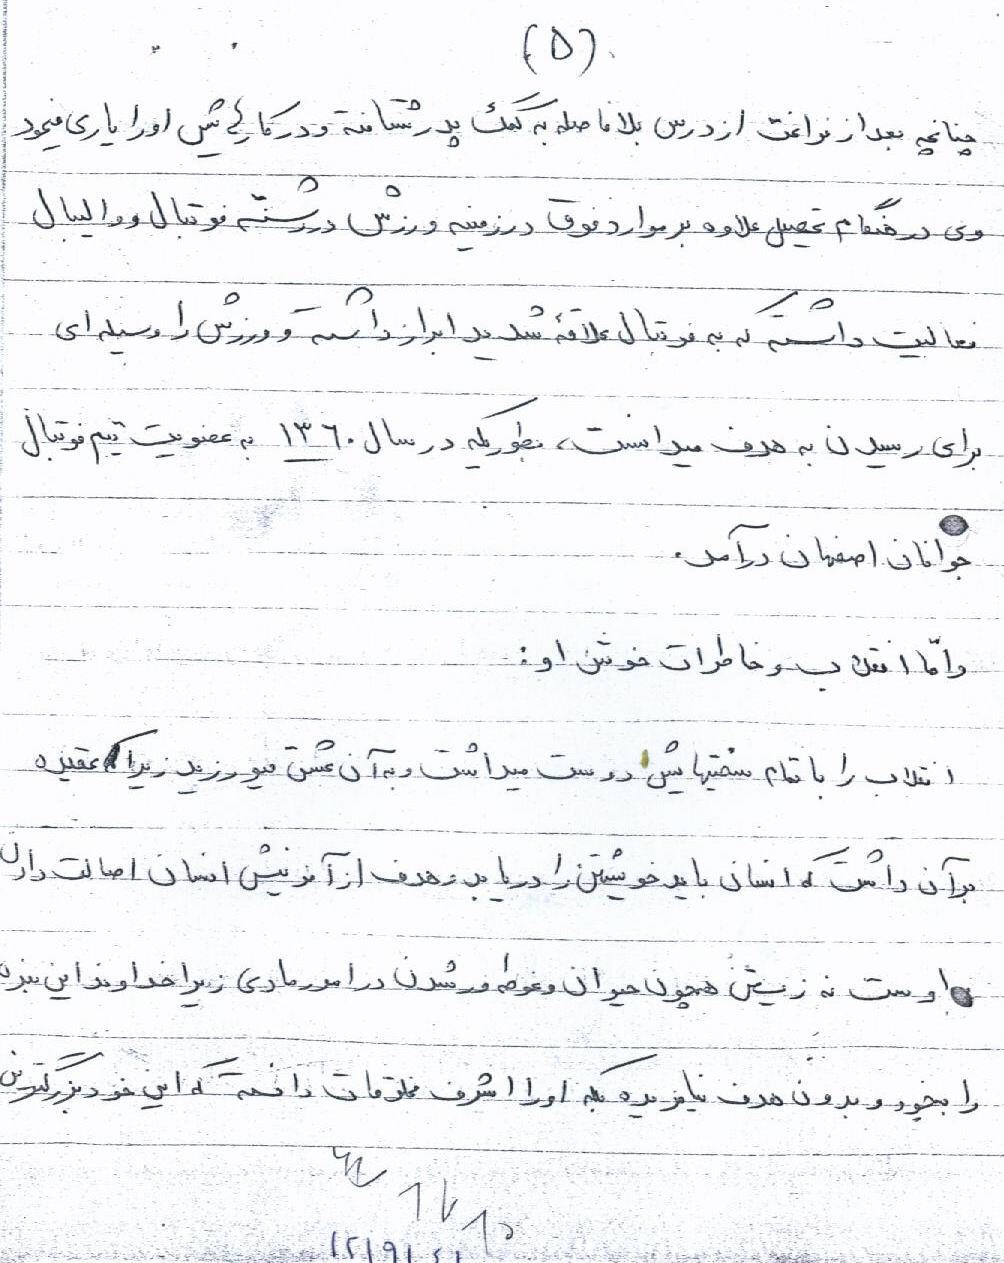 (۵)
چنانچه بعد از فراغت از درس بلافاصله به کمک پدر شتافته و در کارهایش او را یاری مینمود
وی در هنگام تحصیل علاوه بر موارد فوق در زمینه ورزش در رشته فوتبال و والیبال
فعالیت داشته که به فوتبال علاقهٔ شدید ابراز داشته و ورزش را وسیله ای
برای رسیدن به هدف میدانست، بطوریکه در سال ۱۳۶۰ به عضویت تیم فوتبال
جوانان اصفهان درآمد.
و امّا انقلاب و خاطرات خوش او:
انقلاب را با تمام سختیهایش دوست میداشت و به آن عشق میورزید زیرا که عقیده
بر آن داشت که انسان باید خویشتن را دریابد و هدف از آفرینش انسان اصالت دادن
اوست نه زیستن همچون حیوان و غوطه ور شدن در امور مادی زیرا خداوند این بنده
را بیخود و بدون هدف نیافریده بلکه او را اشرف مخلوقات دانسته که این خود بزرگترین